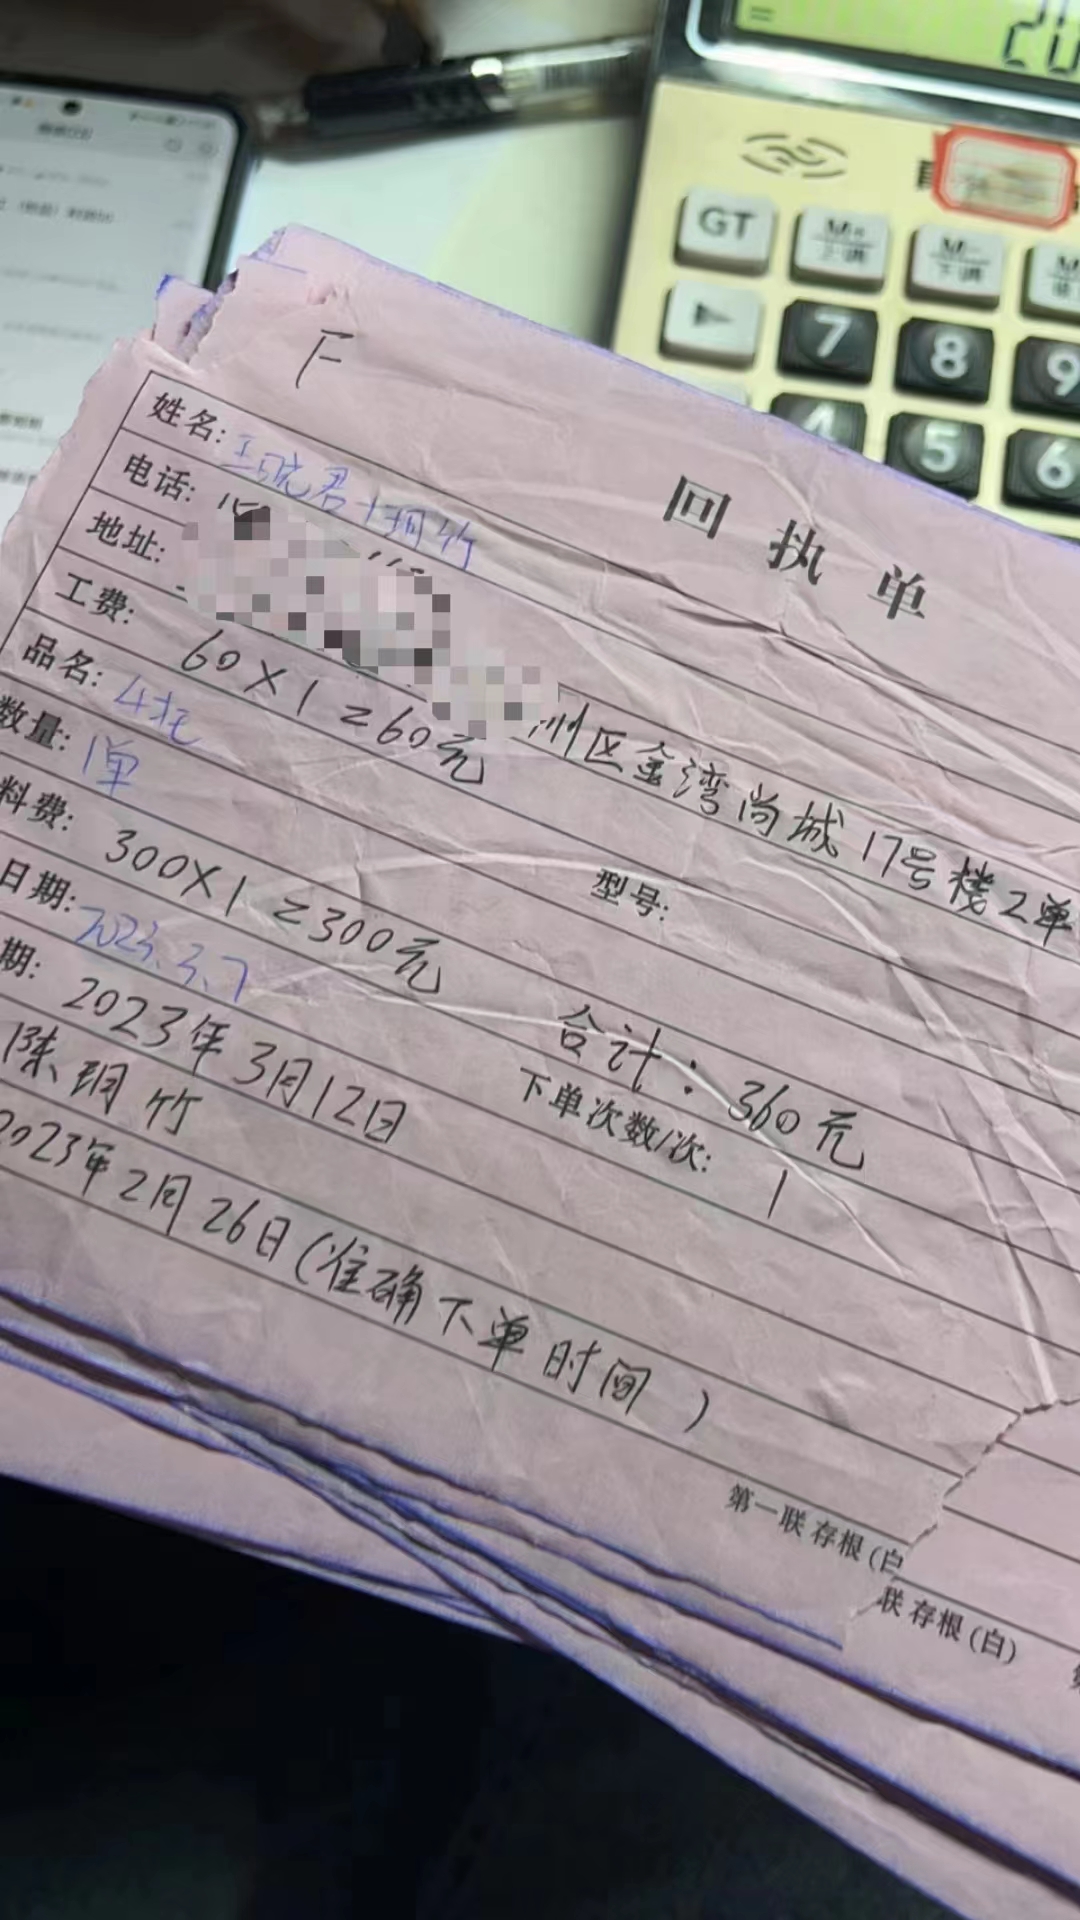 GT
M+
M-
7
8
9
4
5
6
F
回执单
姓名: 王晓君+玥竹
电话:
地址: 州区金湾尚城17号楼2单
工费: 60×1=60元
品名: 4托
型号:
数量: 1单
料费: 300×1=300元
合计: 360元
日期: 2023.3.7
下单次数/次: 1
期: 2023年3月12日
陈玥竹
2023年2月26日(准确下单时间)
第一联 存根(白
联 存根(白)